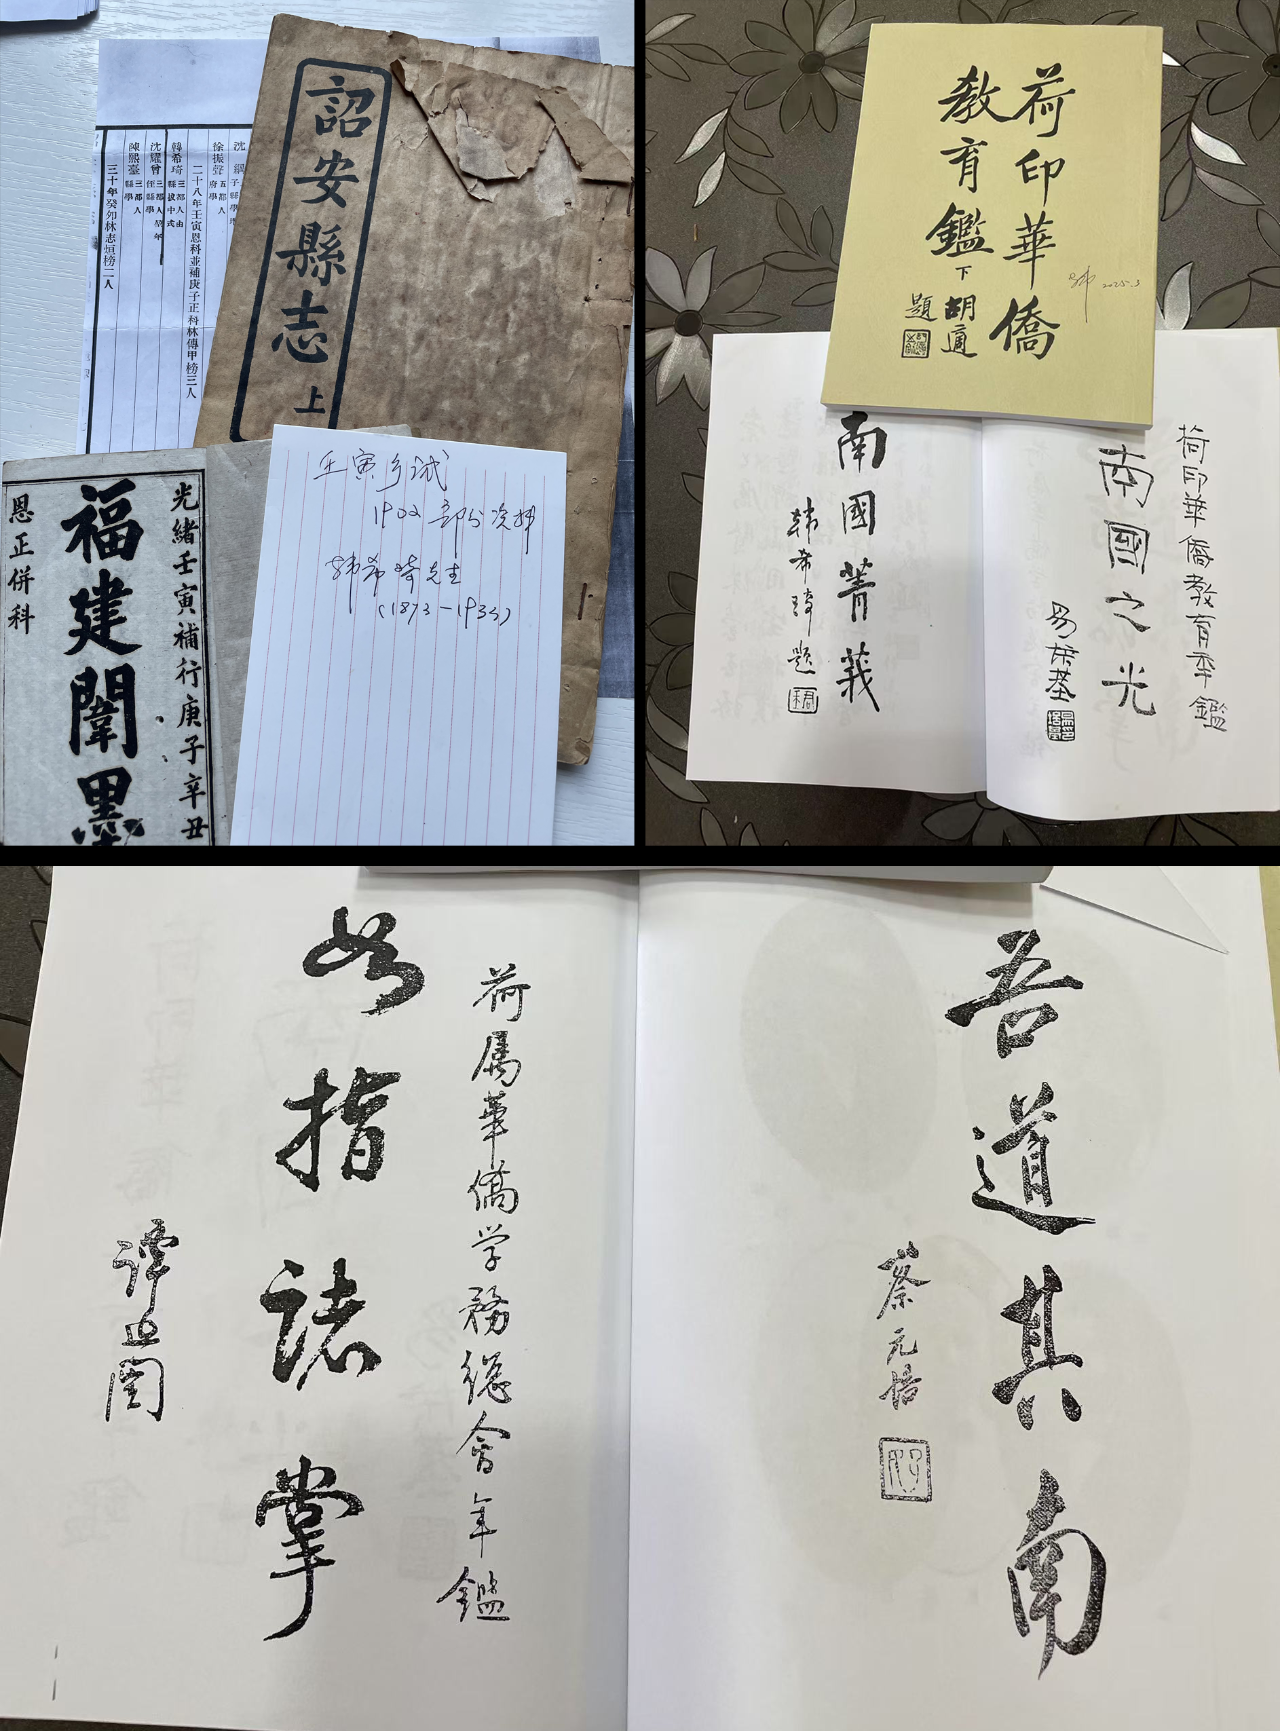 詔安縣志 上
沈
徐振聲 五都人 府學
二十八年壬寅恩科並補庚子正科林傳甲榜三人
韓希琦 三都人由縣拔中式
沈耀曾
陳熙臺 三都人 縣學
三十年癸夘林志恒榜二人
光緒壬寅補行庚子辛丑
福建闈墨
恩正併科
壬寅乡试
1902 部分资料
韩希琦先生
荷印華僑
教育鑑 下
胡適
題
2025.3
荷印華僑教育年鑑
南國之光
易培基
南國菁莪
韩希琦題
吾道其南
蔡元培
荷属華僑学務總會年鑑
如指諸掌
譚延闿